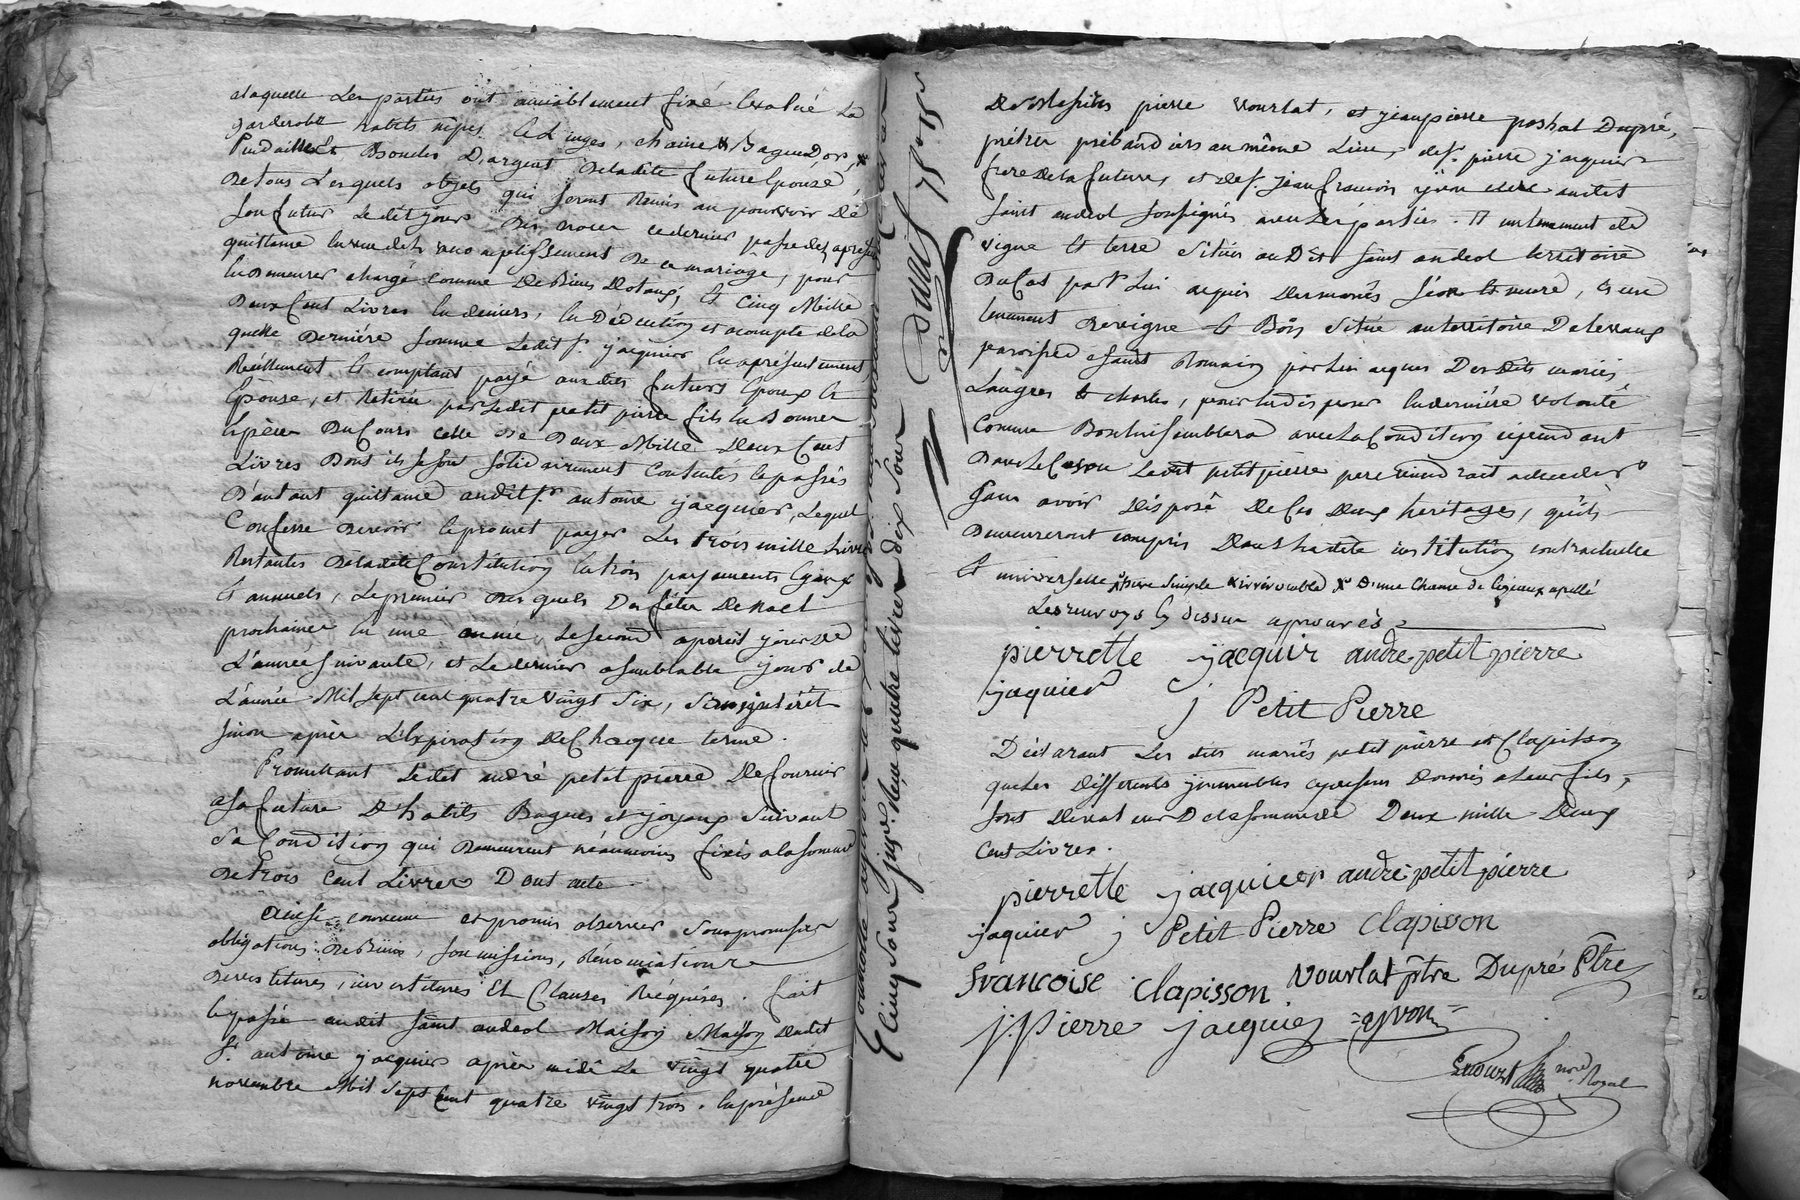 a laquelle Les parties ont amiablement fixé Évalué La
garderobe habits nipes et Linges, chaine & Bague D'or, x
Pendailles Et Boucles D'argent De la dite future Épouse
De tous Lesquels objets qui Seront Remis au pouvoir De
Son futur Ledit jour Des noces ce dernier passe des apresent
quittance En vue de L'accomplissement De ce mariage, pour
En Demeurer chargé comme De Biens Dotaux, Et Cinq Mille
Deux Cent Livres En deniers, En Déduction et acompte de la
quelle Derniére Somme Ledit Sr. jacquier En a présentement
Réellement Et comptant payé aux dits futurs Époux Et
Épouse, et Retirée par Ledit petit pierre fils En Bonnes
Espèces Du Cours celle De Deux Mille Deux Cent
Livres Dont ils Se Sont Solidairement Contentés Et passés
D'autant quittance audit Sr. antoine jacquier, Lequel
Confesse Devoir Et promet payer Les trois mille Livres
Restantes De ladite Constitution En trois payements Égaux
Et annuels, Le premier Des quels Des fêtes De noel
prochaines En une année, Le Second a pareil jour De
L'année Suivante, et Le dernier a Semblable jour de
L'année Mil Sept cent quatre vingt Six, Sans intérêt
Sinon après L'Expiration De Chaque terme.
Promettant Ledit andré petit pierre De fournir
a Sa future D'habits Bagues et joyaux Suivant
Sa Condition qui Demeurent néanmoins fixés a la Somme
De trois Cent Livres Dont acte
Ainsi convenu et promis observer Sous promesses
obligations De Biens, Soumissions, Rénonciations
Devestitures, investitures Et Clauses Requises. fait
Et passé audit Saint andeol Maison Maison Dudit
Sr. antoine jacquier après midi Le vingt quatre
novembre Mil Sept Cent quatre vingt trois. En présence
De Messires pierre Vourlat, et jean pierre pashal Dupré,
prêtres prébandiers au même Lieu, de Sr. pierre jacquier
frere De la future, et de Sr. jean francois yvon clerc audit
Saint andeol Soussignés avec Les parties. Et un tenement de
vigne Et terre Situés au Dit Saint andeol territoire
Du Cas par Lui acquis Des mariés, Et un
tenement De vigne Et Bois Situé au territoire De
paroisse Saint Romain par Lui acquis Des Dits mariés
, pour En disposer En derniére volonté
Comme Bon Lui Semblera avec La Condition cependant
Dans Le Cas ou Ledit petit pierre pere viendrait a deceder
Sans avoir Disposé De Ces Deux héritages, qu'ils
Demeureront compris Dans La dite institution contractuelle
Et universelle x pure Simple & irrévocable x D'une Chaine de Ciseaux
Les renvoys Cy dessus aprouvés
pierrette jacquir andré petit pierre
jaquier j Petit Pierre
Déclarant Les dits mariés petit pierre et Clapisson
que Les differents immeubles cy dessus Donnés a Leur fils,
Sont De valeur De la Somme de Deux mille Deux
Cent Livres.
pierrette jacquier andré petit pierre
jaquier j Petit Pierre Clapisson
francoise Clapisson Vourlat ptre Dupré Ptre
j. Pierre jacquier yvon
nore Royal